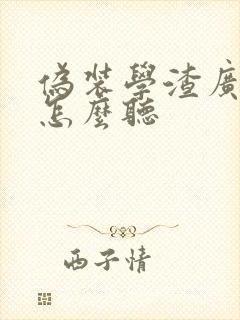 偽裝學渣廣
怎麼聽
西子情